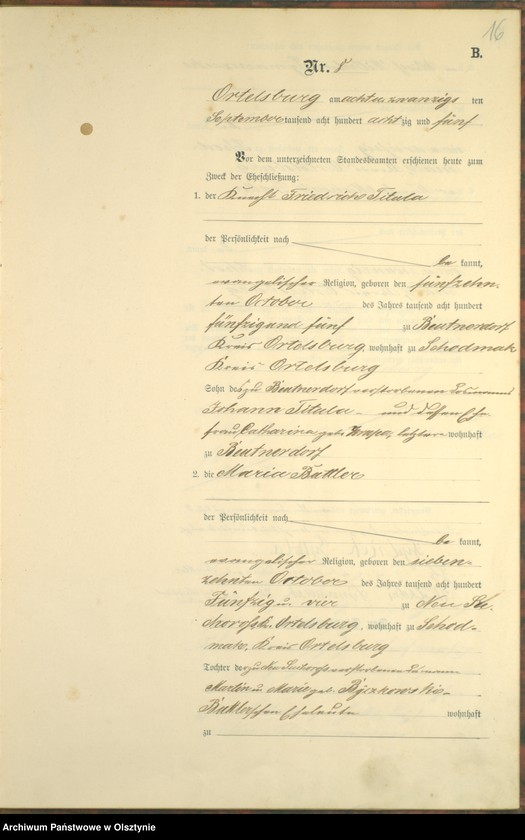 16
B.
Nr. 8
Ortelsburg am acht u. zwanzigs ten
September tausend acht hundert acht zig und fünf
Vor dem unterzeichneten Standesbeamten erschienen heute zum
Zweck der Eheschließung:
1. der Knecht Friedrich Titula
der Persönlichkeit nach
be kannt,
evangelischer Religion, geboren den fünfzehn-
ten October des Jahres tausend acht hundert
fünfzig und fünf zu Beutnerdorf
Kreis Ortelsburg, wohnhaft zu Schodmak
Kreis Ortelsburg
Sohn des zu Beutnerdorf verstorbenen
Johann Titula und dessen Ehe
frau Catharina geb. letztere wohnhaft
zu Beutnerdorf
2. die Maria Battler
der Persönlichkeit nach
be kannt,
evangelischer Religion, geboren den sieben-
zehnten October des Jahres tausend acht hundert
Fünfzig u. vier zu Neu
Ortelsburg, wohnhaft zu Schod-
mak, Kreis Ortelsburg
Tochter der zu Neu verstorbenen
Martin u. Marie geb.
Battlerschen Eheleute wohnhaft
zu
Archiwum Państwowe w Olsztynie